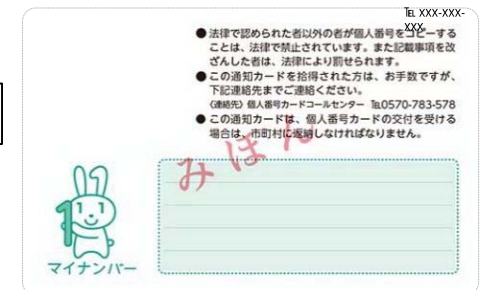 TEL XXX-XXX-
XXX
● 法律で認められた者以外の者が個人番号をコピーする
ことは、法律で禁止されています。また記載事項を改
ざんした者は、法律により罰せられます。
● この通知カードを拾得された方は、お手数ですが、
下記連絡先までご連絡ください。
〈連絡先〉個人番号カードコールセンター ℡0570-783-578
● この通知カードは、個人番号カードの交付を受ける
場合は、市町村に返納しなければなりません。
みほん
1
マイナンバー